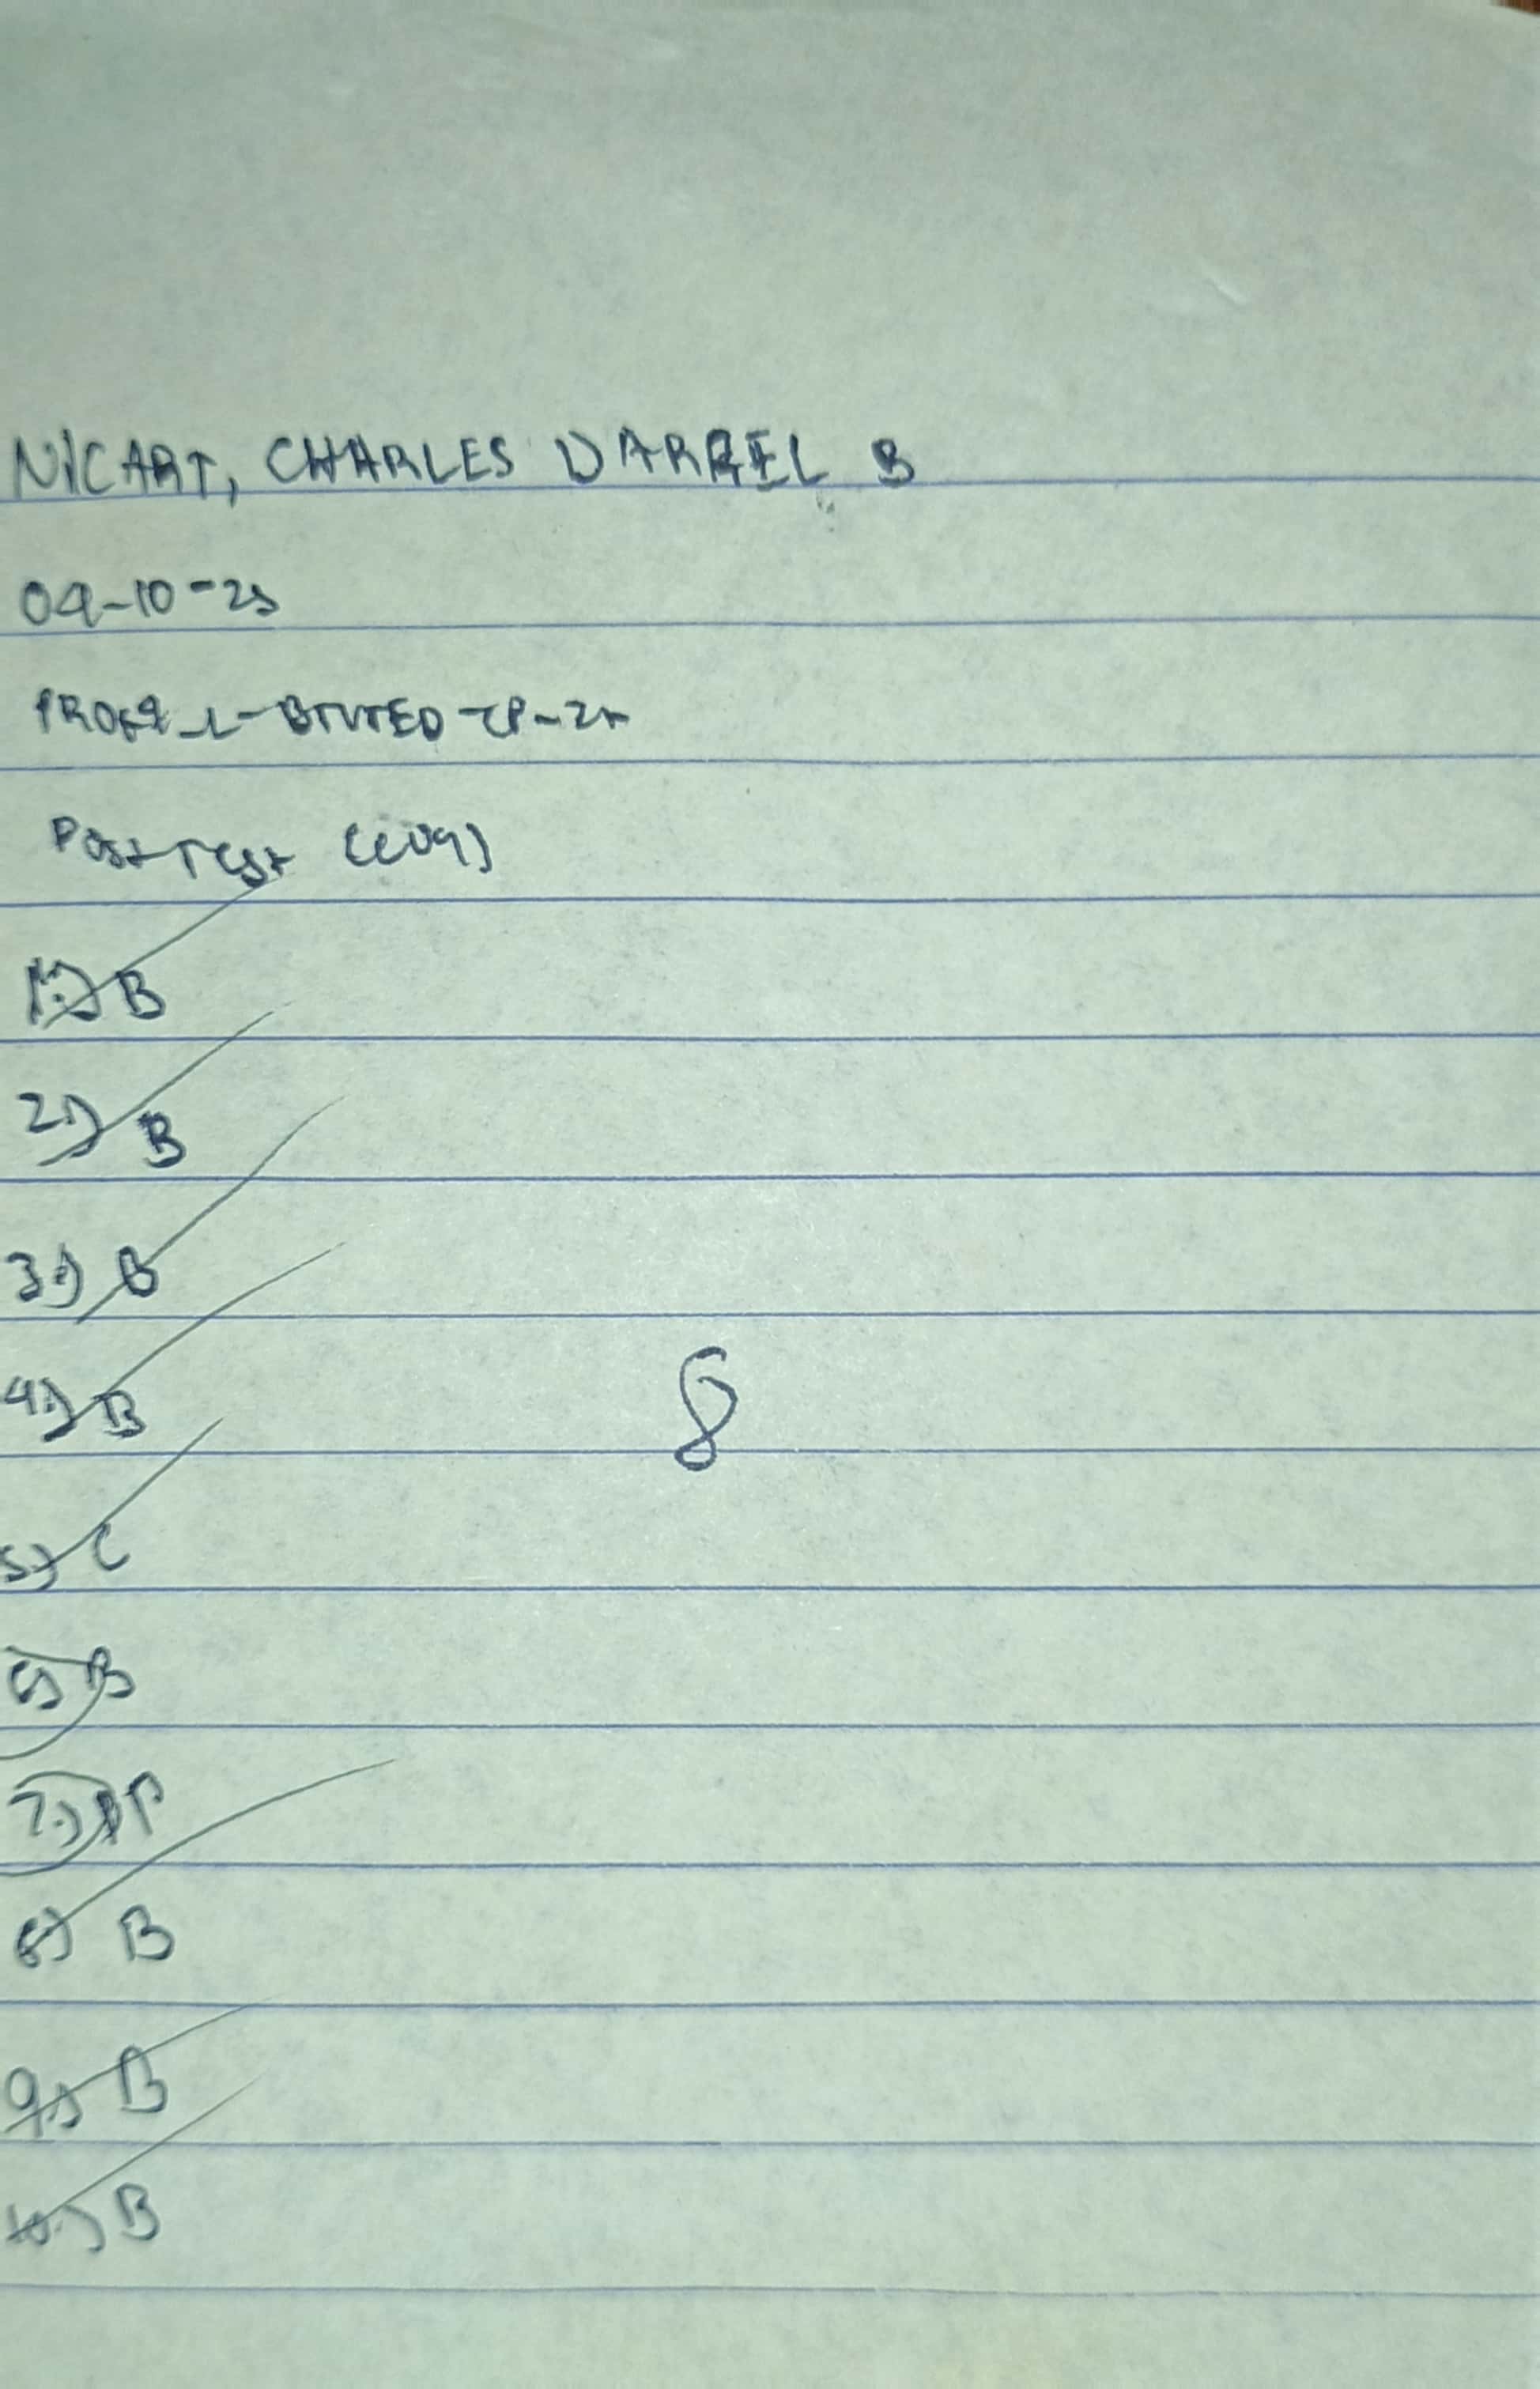 NICART, CHARLES DARREL B
09-10-25
BTVTED-CP-2A
Post Test
1.) B
2.) B
3.) B
4.) B
8
5.) C
6.) B
7.)
8.) B
9.) B
10.) B